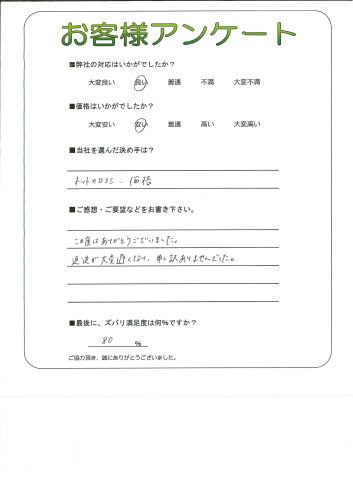 お客様アンケート
■弊社の対応はいかがでしたか？
大変良い 良い 普通 不満 大変不満
■価格はいかがでしたか？
大変安い 安い 普通 高い 大変高い
■当社を選んだ決め手は？
ネットの口コミ、価格
■ご感想・ご要望などをお書き下さい。
この度はありがとうございました。
返送が大変遅くなり、申し訳ありませんでした。
■最後に、ズバリ満足度は何％ですか？
80 %
ご協力頂き、誠にありがとうございました。